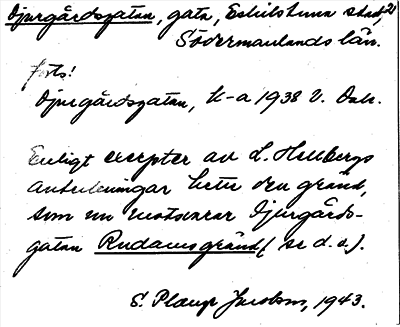 Djurgårdsgatan, gata, Eskilstuna stad, 2)
Södermanlands län.
forts!
Djurgårdsgatan, K-a 1938 V. Dal.
Enligt excerpter av L. Hellbergs
anteckningar hette den gränd,
som nu motsvarar Djurgårds-
gatan Rudamsgränd (se d.o.).
S. Plaup Jacobson, 1943.